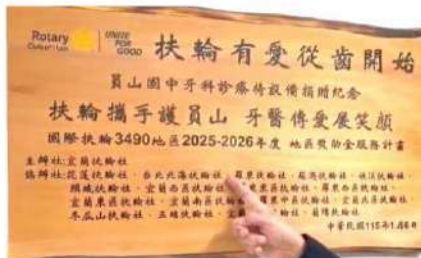 Rotary
UNITE
FOR
GOOD
扶輪有愛從齒開始
員山國中牙科診療椅設備捐贈紀念
扶輪攜手護員山 牙醫傳愛展笑顏
國際扶輪3490地區2025-2026年度 地區獎助金服務計畫
主辦社:宜蘭扶輪社
協辦社:花蓮扶輪社、台北北海扶輪社、羅東扶輪社、蘇澳扶輪社、
頭城扶輪社、宜蘭西區扶輪社、東區扶輪社、羅東西區扶輪社、
宜蘭東區扶輪社、宜蘭南區扶輪社、羅東中區扶輪社、宜蘭北區扶輪社
冬瓜山扶輪社、五結扶輪社、宜蘭 輪社、蘭陽扶輪社
中華民國115年1月6日